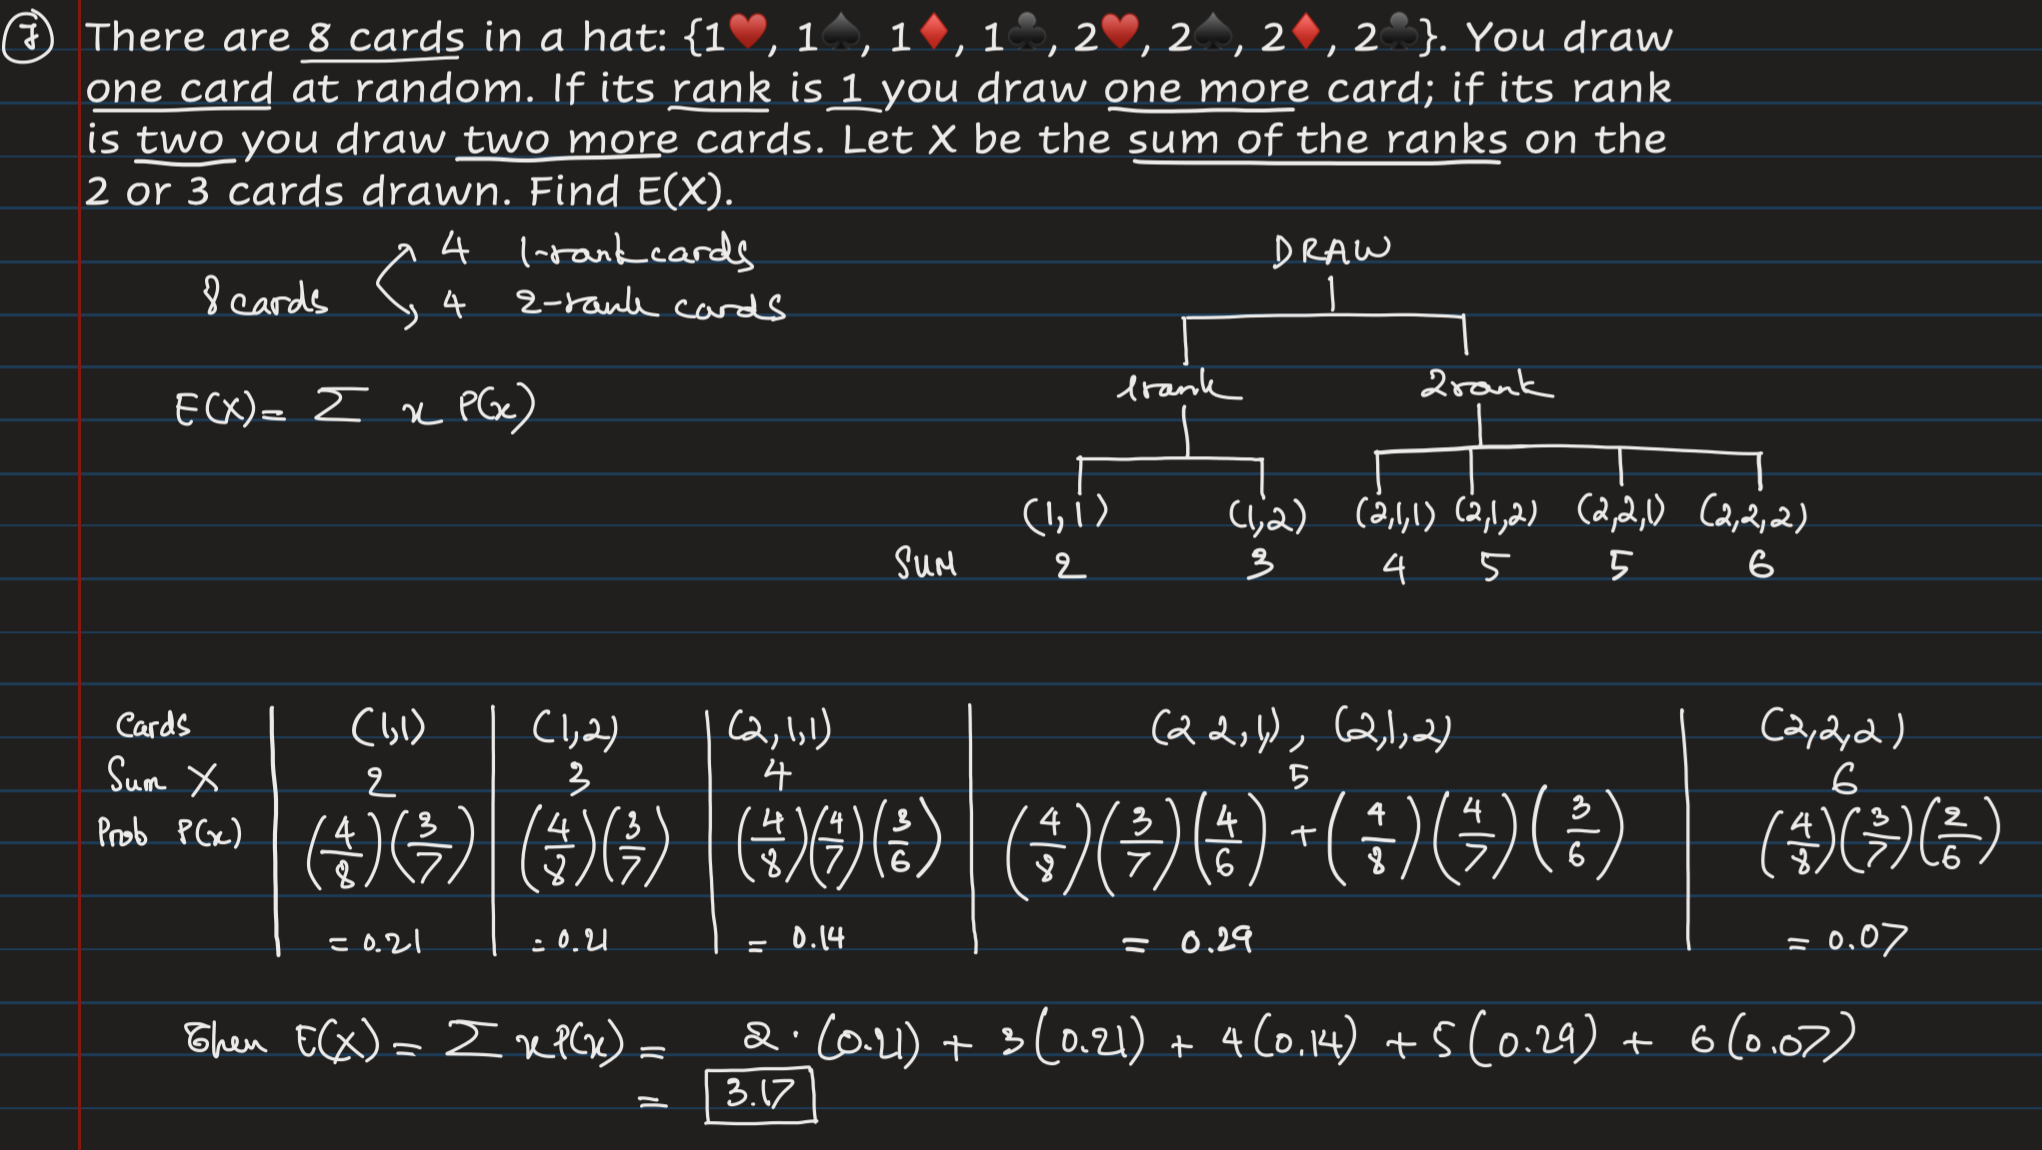 ⑦ There are 8 cards in a hat: {1♥️, 1♠️, 1♦️, 1♣️, 2♥️, 2♠️, 2♦️, 2♣️}. You draw
one card at random. If its rank is 1 you draw one more card; if its rank
is two you draw two more cards. Let X be the sum of the ranks on the
2 or 3 cards drawn. Find E(X).
8 cards
4 1-rank cards
4 2-rank cards
E(X) = Σ x P(x)
DRAW
1 rank 2 rank
(1,1) (1,2) (2,1,1) (2,1,2) (2,2,1) (2,2,2)
SUM 2 3 4 5 5 6
Cards (1,1) (1,2) (2,1,1) (2 2,1), (2,1,2) (2,2,2)
Sum X 2 3 4 5 6
Prob P(x) (4/8)(3/7) (4/8)(3/7) (4/8)(4/7)(3/6) (4/8)(3/7)(4/6) + (4/8)(4/7)(3/6) (4/8)(3/7)(2/6)
= 0.21 = 0.21 = 0.14 = 0.29 = 0.07
Then E(X) = Σ x P(x) = 2 · (0.21) + 3 (0.21) + 4 (0.14) + 5 (0.29) + 6 (0.07)
= 3.17